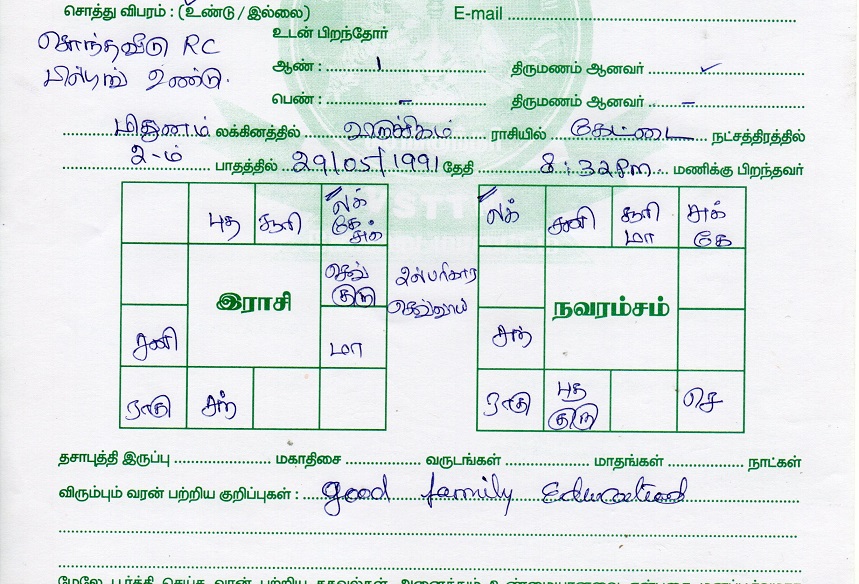 சொத்து விபரம் : (உண்டு / இல்லை) E-mail
சொந்தவீடு RC உடன் பிறந்தோர்
பில்டிங் உண்டு. ஆண் : 1 திருமணம் ஆனவர் ✓
பெண் : – திருமணம் ஆனவர் –
மிதுனம் லக்கினத்தில் விருச்சிகம் ராசியில் கேட்டை நட்சத்திரத்தில்
2-ம் பாதத்தில் 29/05/1991 தேதி 8:32 Pm மணிக்கு பிறந்தவர்
புத சூரி லக் கே சுக்
லக் சனி சூரி மா சுக் கே
செவ் குரு பரிகார செவ்வாய்
இராசி நவரம்சம்
சனி மா சந்
ராகு சந் ராகு புத குரு செ
தசாபுத்தி இருப்பு மகாதிசை வருடங்கள் மாதங்கள் நாட்கள்
விரும்பும் வரன் பற்றிய குறிப்புகள் : good family Educated